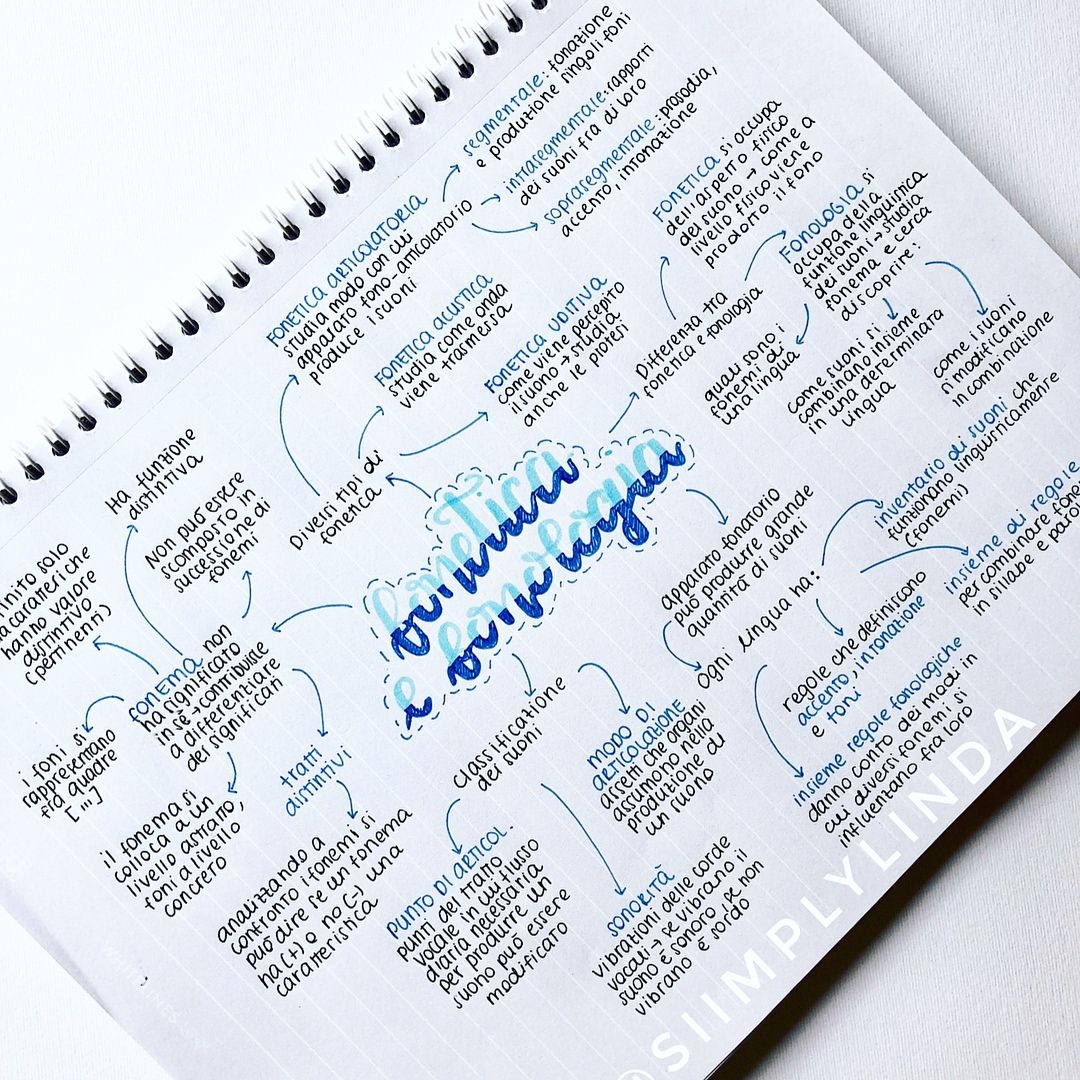 fonetica
e fonologia
Diversi tipi di
fonetica
FONETICA ARTICOLATORIA
studia modo con cui
apparato fono-articolatorio
produce i suoni
segmentale: fonazione
e produzione singoli foni
intrasegmentale: rapporti
dei suoni fra di loro
soprasegmentale: prosodia,
accento, intonazione
FONETICA ACUSTICA
studia come onda
viene trasmessa
FONETICA UDITIVA
come viene percepito
il suono → studia
anche le protesi
Differenza tra
fonetica e fonologia
FONETICA si occupa
dell'aspetto fisico
del suono → come a
livello fisico viene
prodotto il fono
FONOLOGIA si
occupa della
funzione linguistica
dei suoni → studia
fonema e cerca
di scoprire:
quali sono i
fonemi di
una lingua
come suoni si
combinano insieme
in una determinata
lingua
come i suoni
si modificano
in combinazione
apparato fonatorio
può produrre grande
quantità di suoni
Ogni lingua ha:
inventario di suoni che
funzionano linguisticamente
(fonemi)
insieme di regole
per combinare fone
in sillabe e parole
regole che definiscono
accento, intonazione
e toni
insieme regole fonologiche
danno conto dei modi in
cui diversi fonemi si
influenzano fra loro
classificazione
dei suoni
MODO DI
ARTICOLAZIONE
assetti che organi
assumono nella
produzione di
un suono
SONORITÀ
vibrazioni delle corde
vocali → se vibrano il
suono è sonoro, se non
vibrano è sordo
PUNTO DI ARTICOL.
punti del tratto
vocale in cui flusso
d'aria necessaria
per produrre un
suono può essere
modificato
FONEMA non
ha significato
in sé → contribuisce
a differenziare
dei significati
Ha funzione
distintiva
Non può essere
scomposto in
successione di
fonemi
inito solo
da caratteri che
hanno valore
distintivo
(pertinenti)
i foni si
rappresentano
fra quadre
["']
il fonema si
colloca a un
livello astratto,
foni a livello
concreto
tratti
distintivi
analizzando a
confronto i fonemi si
può dire se un fonema
ha (+) o no (-) una
caratteristica
@SIIMPLYLINDA